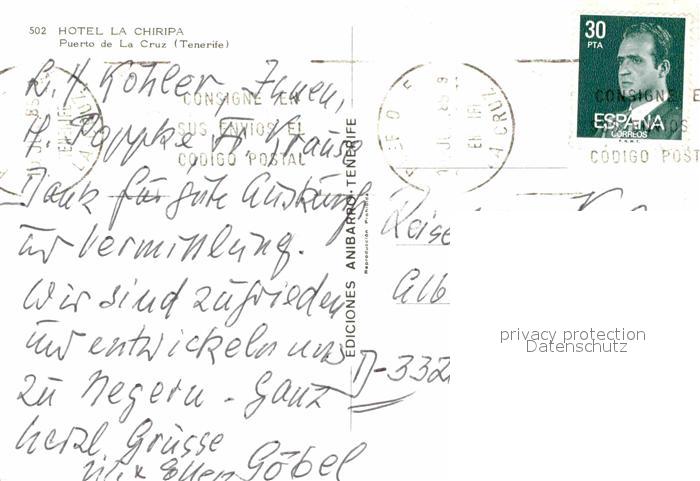 502 HOTEL LA CHIRIPA
Puerto de La Cruz (Tenerife)
30
PTA
ESPAÑA
CORREOS
F.N.M.T.
CONSIGNE EN
SUS ENVIOS EL
CODIGO POSTAL
CONSIGNE E
ENVIOS
CODIGO POST
LA CRUZ
EDICIONES ANIBARRO-TENERIFE
Reproducción Prohibida
L. H. Köhler, Ihnen,
H. Poppke Fr Krause
Dank für gute Auskünfte
und Vermittlung.
Wir sind zufrieden
und entwickeln uns
zu Negern. Ganz
herzl. Grüsse
Göbel
Reise
Alb
D-332
privacy protection
Datenschutz